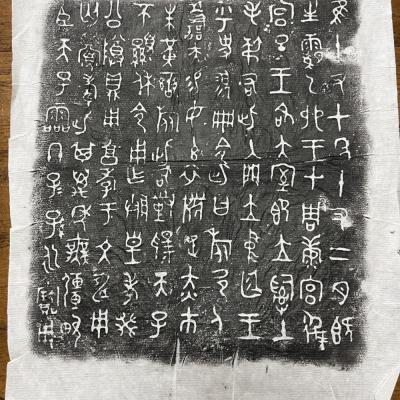 隹十又七年十又二月既
生霸乙卯王才周康宫徲
宫旦王各大室即立司土
毛叔右此入門立中廷王
乎史翏册令此曰旅邑人
善夫易女玄衣黹屯赤市
朱黄䜌旅此敢對揚天子
不顯休令用乍朕皇考癸
公尊鼎用享孝于文申用
匄眉壽此其萬年無疆畯
臣天子霝冬子子孫孫永寶用